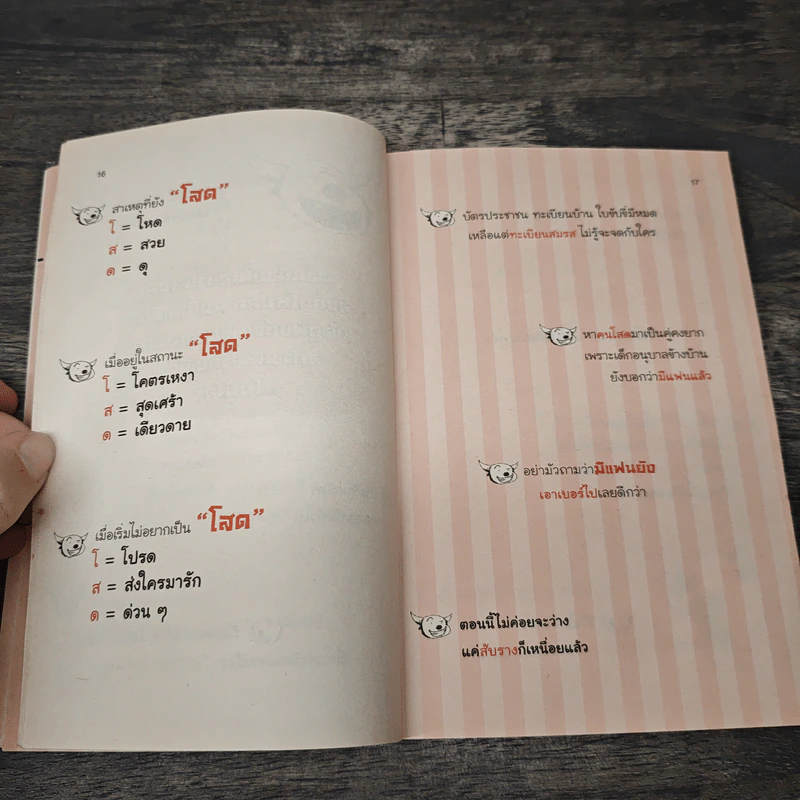 16
สาเหตุที่ยัง “โสด”
โ = โหด
ส = สวย
ด = ดุ
เมื่ออยู่ในสถานะ “โสด”
โ = โคตรเหงา
ส = สุดเศร้า
ด = เดียวดาย
เมื่อเริ่มไม่อยากเป็น “โสด”
โ = โปรด
ส = ส่งใครมารัก
ด = ด่วน ๆ
17
บัตรประชาชน ทะเบียนบ้าน ใบขับขี่มีหมด
เหลือแต่ทะเบียนสมรส ไม่รู้จะจดกับใคร
หาคนโสดมาเป็นคู่คงยาก
เพราะเด็กอนุบาลข้างบ้าน
ยังบอกว่ามีแฟนแล้ว
อย่ามัวถามว่ามีแฟนยัง
เอาเบอร์ไปเลยดีกว่า
ตอนนี้ไม่ค่อยจะว่าง
แค่สับรางก็เหนื่อยแล้ว